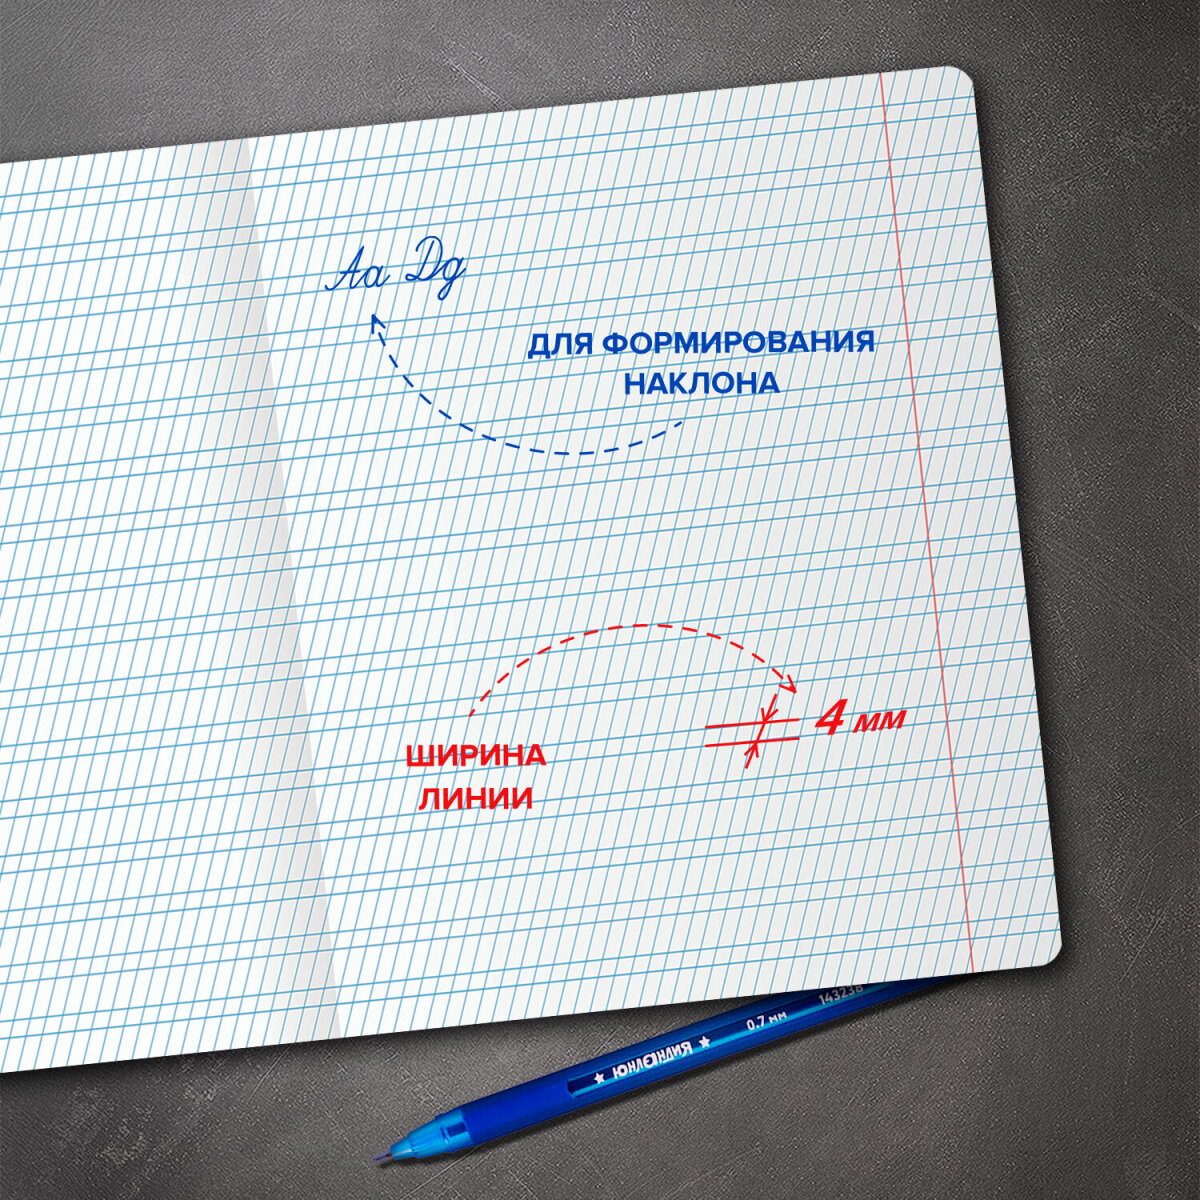 Аа Dg
ДЛЯ ФОРМИРОВАНИЯ
НАКЛОНА
4 мм
ШИРИНА
ЛИНИИ
143238
0.7 мм
★ ЮНЛАНДИЯ ★